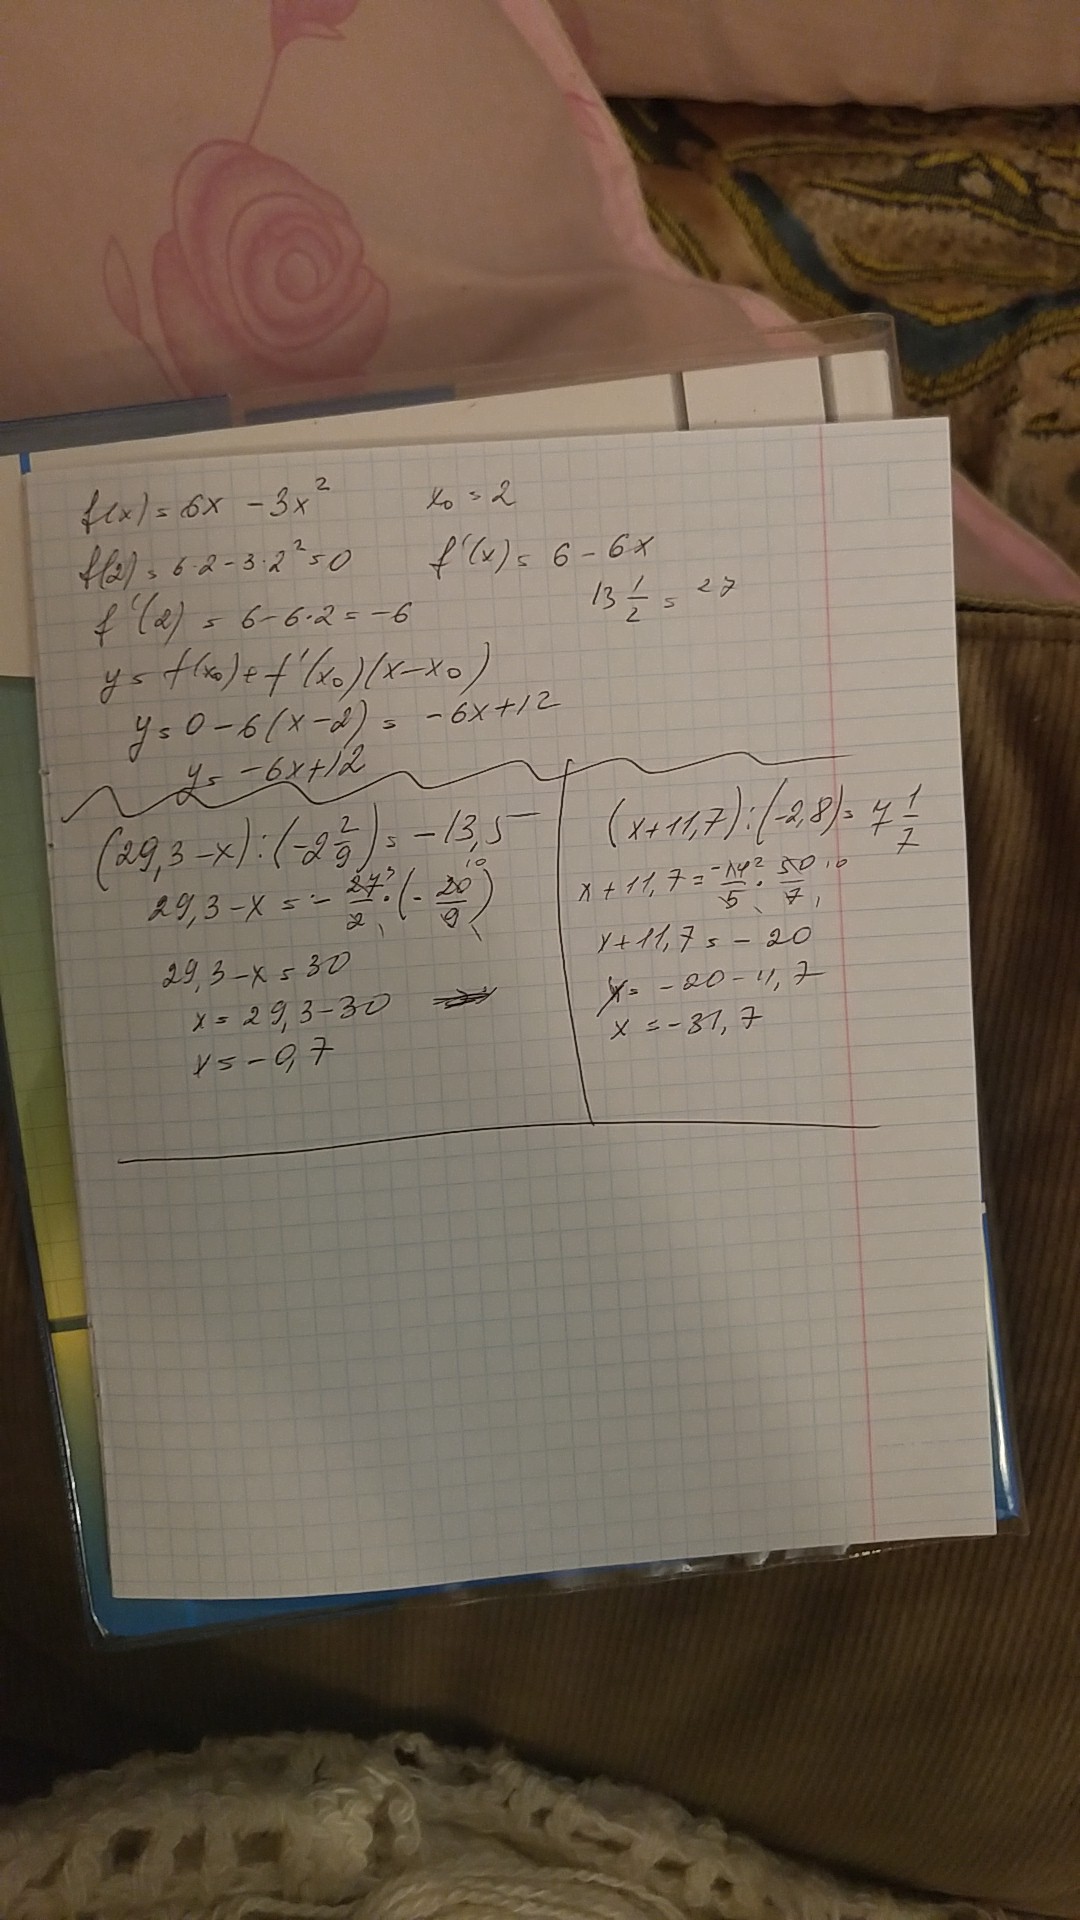 f(x) = 6x - 3x² x₀ = 2
f(2) = 6·2 - 3·2² = 0 f'(x) = 6 - 6x
f'(2) = 6 - 6·2 = -6 13 1/2 = 27
y = f(x₀) + f'(x₀)(x - x₀)
y = 0 - 6(x - 2) = -6x + 12
y = -6x + 12
(29,3 - x) : (-2 2/9) = -13,5
29,3 - x = - 27³/2₁ · (- 20¹⁰/9₁)
29,3 - x = 30
x = 29,3 - 30
x = -0,7
(x + 11,7) : (-2,8) = 7 1/7
x + 11,7 = -14²/5₁ · 50¹⁰/7₁
x + 11,7 = -20
x = -20 - 11,7
x = -31,7